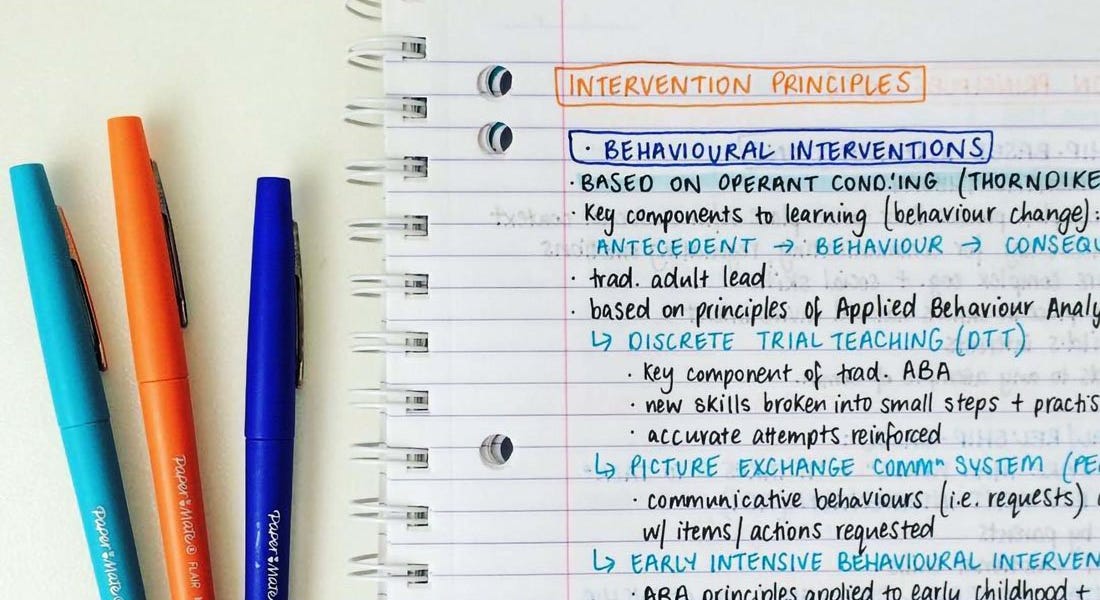 INTERVENTION PRINCIPLES
· BEHAVIOURAL INTERVENTIONS
· BASED ON OPERANT COND.'ING (THORNDIKE
· Key components to learning (behaviour change):
ANTECEDENT → BEHAVIOUR → CONSEQU
· trad. adult lead
· based on principles of Applied Behaviour Analy
↳ DISCRETE TRIAL TEACHING (DTT)
· Key component of trad. ABA
· new skills broken into small steps + practis
· accurate attempts reinforced
↳ PICTURE EXCHANGE COMMⁿ SYSTEM (PE
· communicative behaviours (i.e. requests)
w/ items/actions requested
↳ EARLY INTENSIVE BEHAVIOURAL INTERVEN
· ABA principles applied to early childhood +
Paper Mate
Paper Mate® FLAIR
Paper Mate